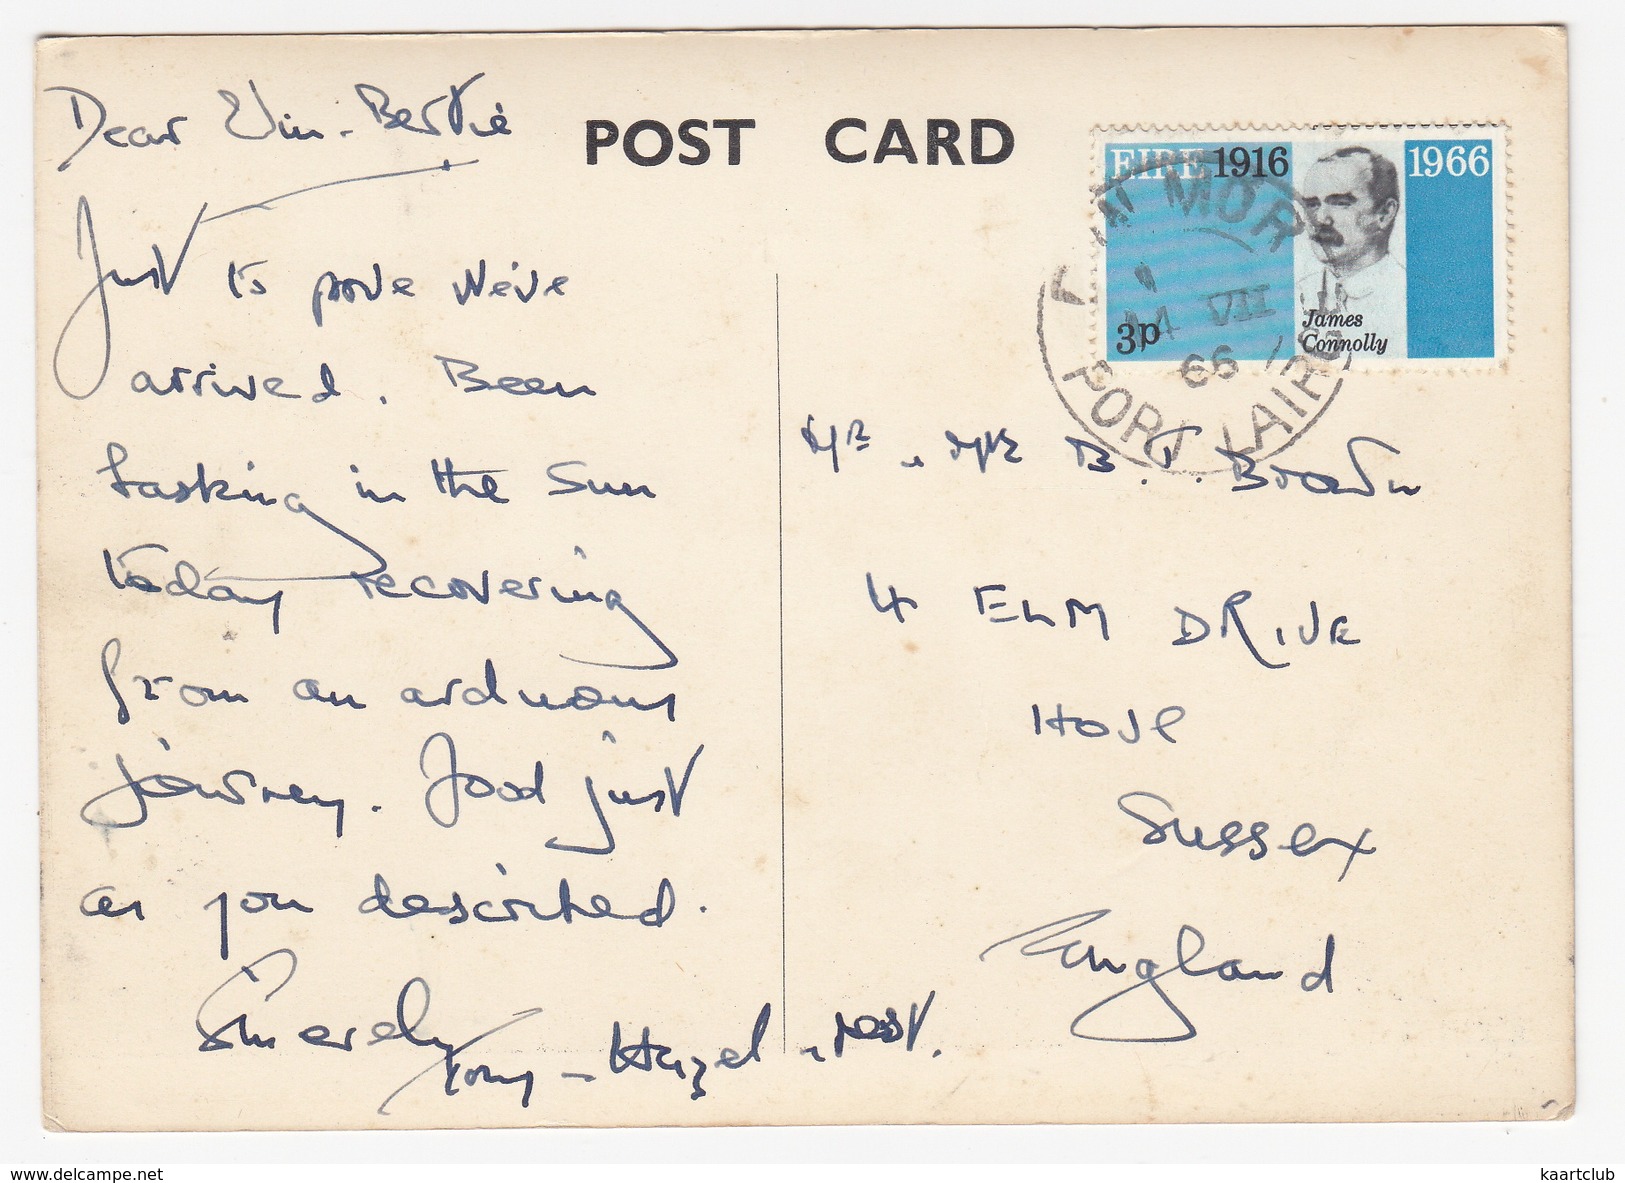 Dear Vin - Bertie
Just to prove we've
arrived. Been
basking in the Sun
today recovering
from an arduous
journey. Food just
as you described.
Sincerely
Tony - Hazel + rest.
POST CARD
EIRE 1916 1966
3p
James
Connolly
MOR
14 VII
66
PORT LAIRGE
B. T.
4 ELM DRIVE
HOVE
Sussex
England
kaartclub